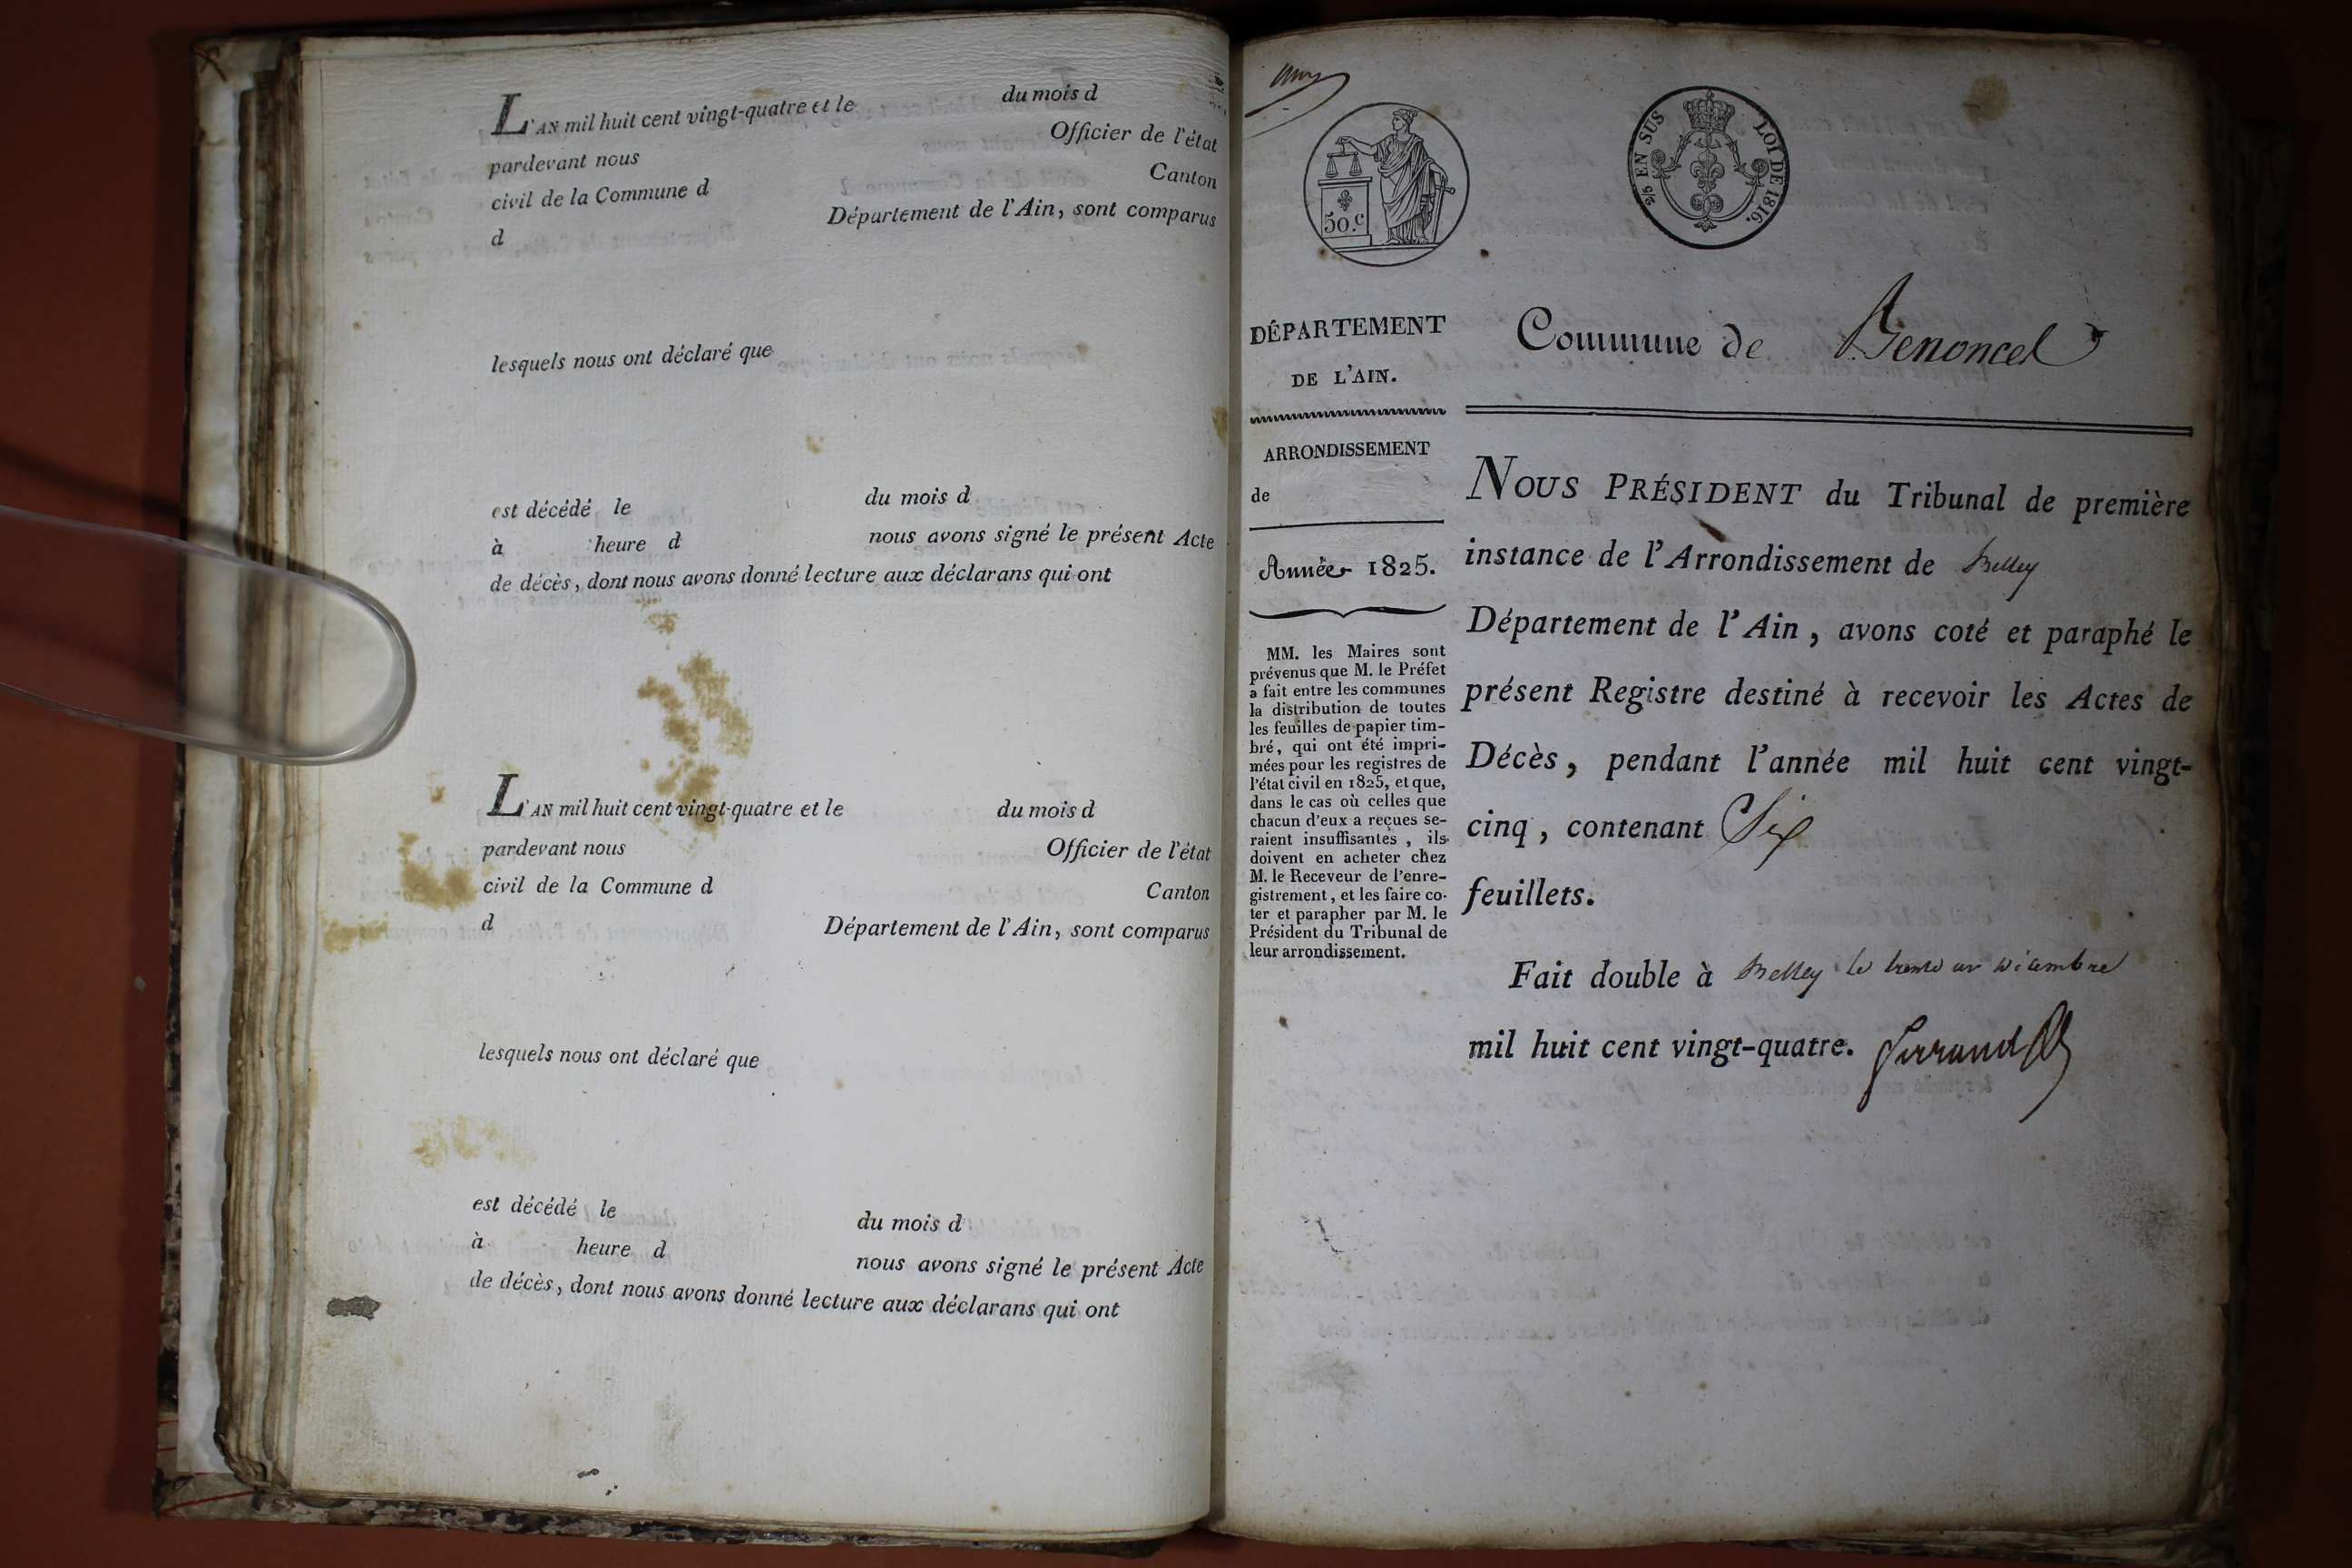 L'AN mil huit cent vingt-quatre et le du mois d
pardevant nous Officier de l'état
civil de la Commune d Canton
d Département de l'Ain, sont comparus
lesquels nous ont déclaré que
est décédé le du mois d
à heure d nous avons signé le présent Acte
de décès, dont nous avons donné lecture aux déclarans qui ont
L'AN mil huit cent vingt-quatre et le du mois d
pardevant nous Officier de l'état
civil de la Commune d Canton
d Département de l'Ain, sont comparus
lesquels nous ont déclaré que
est décédé le du mois d
à heure d nous avons signé le présent Acte
de décès, dont nous avons donné lecture aux déclarans qui ont
50.c
2/5 EN SUS LOI DE 1816.
DÉPARTEMENT
DE L'AIN.
ARRONDISSEMENT
de
Année 1825.
MM. les Maires sont
prévenus que M. le Préfet
a fait entre les communes
la distribution de toutes
les feuilles de papier tim-
bré, qui ont été impri-
mées pour les registres de
l'état civil en 1825, et que,
dans le cas où celles que
chacun d'eux a reçues se-
raient insuffisantes, ils
doivent en acheter chez
M. le Receveur de l'enre-
gistrement, et les faire co-
ter et parapher par M. le
Président du Tribunal de
leur arrondissement.
Commune de Benoncel
NOUS PRÉSIDENT du Tribunal de première
instance de l'Arrondissement de Belley
Département de l'Ain, avons coté et paraphé le
présent Registre destiné à recevoir les Actes de
Décès, pendant l'année mil huit cent vingt-
cinq, contenant Six
feuillets.
Fait double à Belley le trente un décembre
mil huit cent vingt-quatre.